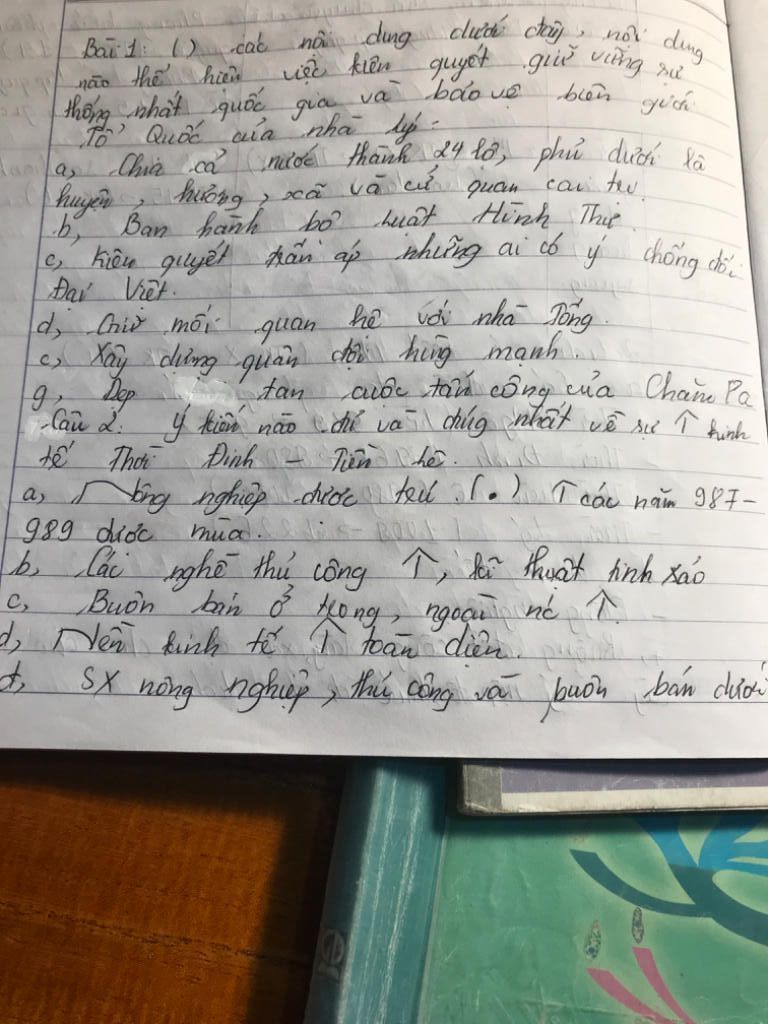 Bài 1: ( ) các nội dung dưới đây, nội dung
nào thể hiện việc kiên quyết giữ vững sự
thống nhất quốc gia và bảo vệ biên giới
Tổ Quốc của nhà lý:
a, Chia cả nước thành 24 lộ, phủ dưới là
huyện, hương, xã và cử quan cai trị.
b, Ban hành bộ luật Hình Thư.
c, Kiên quyết trấn áp những ai có ý chống đối
Đại Việt.
d, Giữ mối quan hệ với nhà Tống.
e, Xây dựng quân đội hùng mạnh.
g, Dẹp tan cuộc tấn công của Chăm Pa
Câu 2: Ý kiến nào chỉ và đúng nhất về sự ↑ kinh
tế Thời Đinh - Tiền lê.
a, Nông nghiệp được trú (.) ↑ các năm 987-
989 được mùa.
b, Các nghề thủ công ↑, kĩ thuật tinh xảo
c, Buôn bán ở trong, ngoài nc ↑
d, Nền kinh tế ↑ toàn diện.
đ, SX nông nghiệp, thủ công và buôn bán dưới